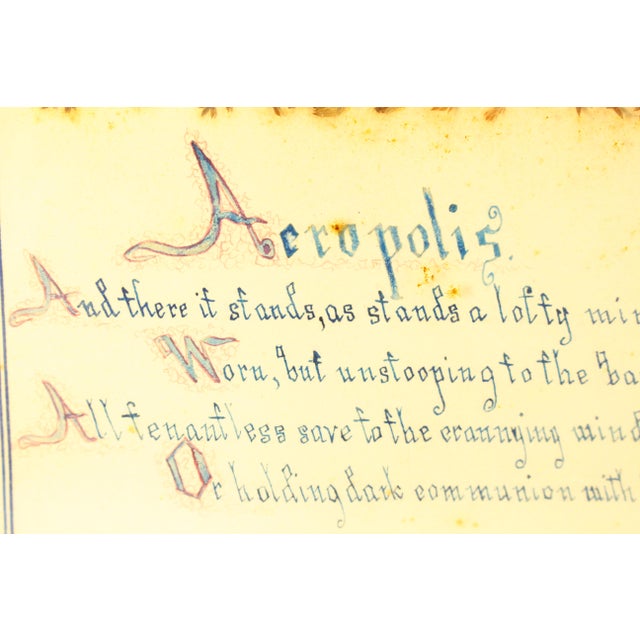 Acropolis.
And there it stands, as stands a lofty min
Worn, but unstooping to the ba
All tenantless save to the crannying wind
Or holding dark communion with